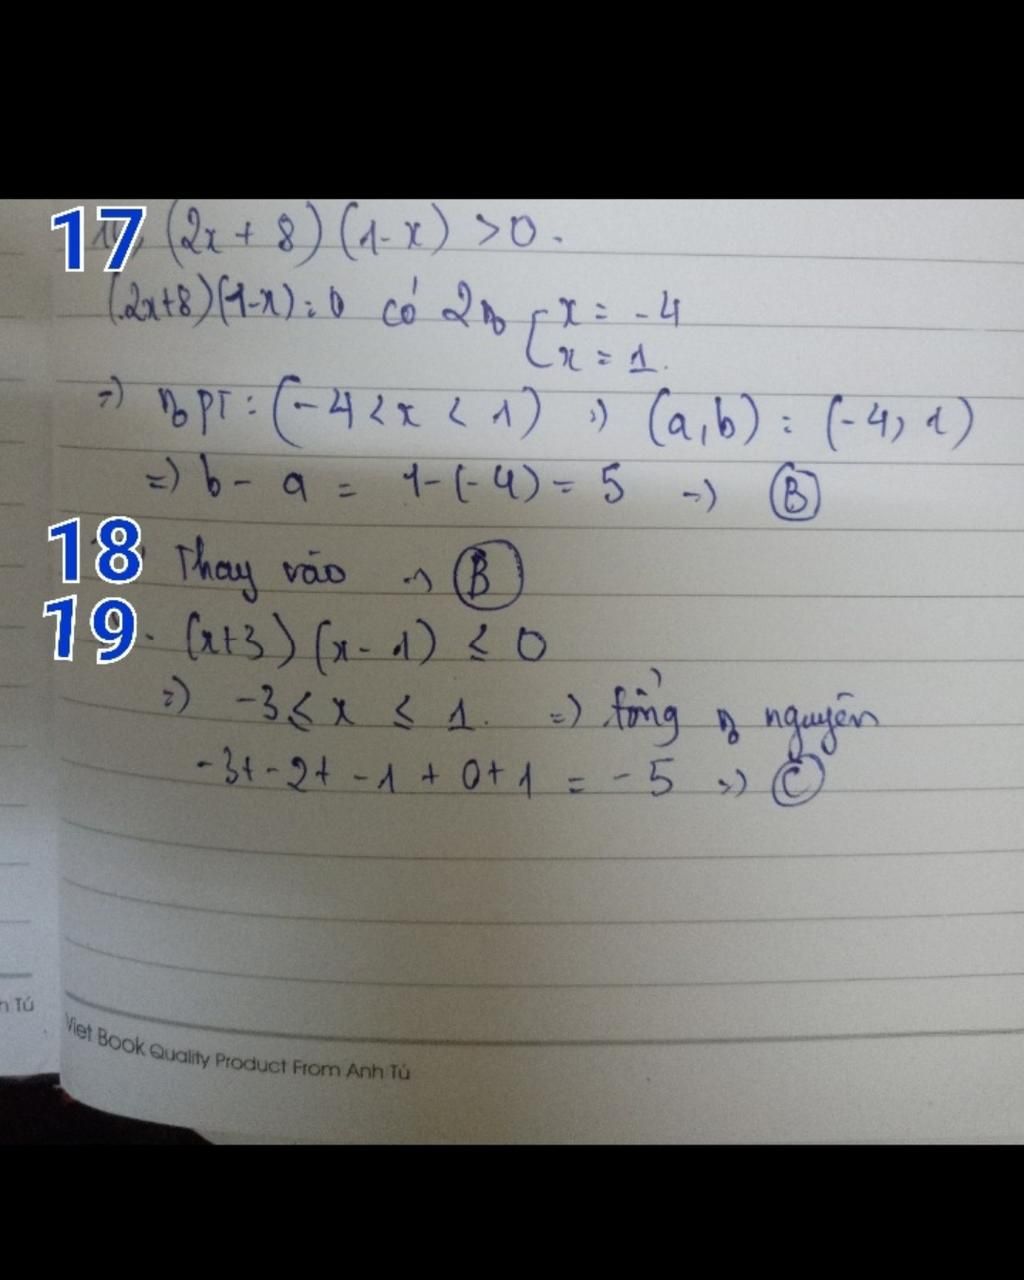 17 (2x + 8) (1-x) >0.
(2x+8)(1-x)=0 có 2 n0 [ x = -4
x = 1.
=) n0 pT : (-4 < x < 1) =) (a,b) : (-4, 1)
=) b - a = 1-(-4) = 5 -) B
18 Thay vào -) B
19. (x+3) (x-1) ≤ 0
=) -3 ≤ x ≤ 1. =) tổng n0 nguyên
-3+ -2+ -1 + 0+1 = -5 =) C
h Tú
Viet Book Quality Product From Anh Tú